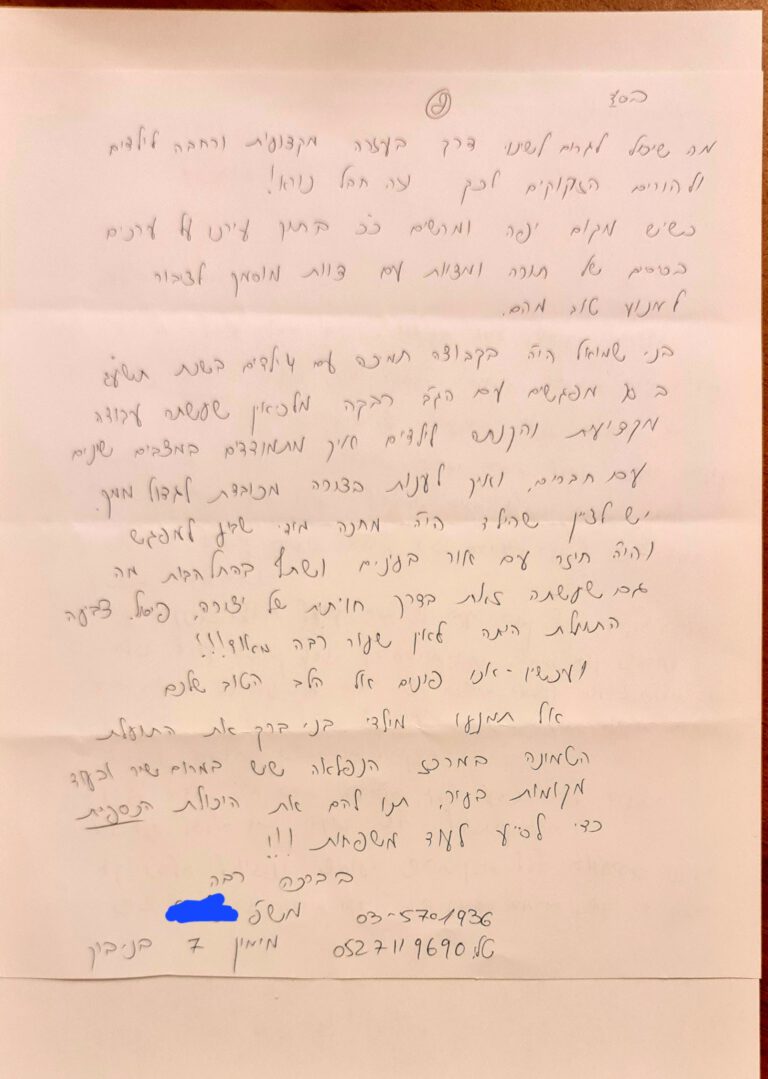 בס"ד
②
מה שיכול לגרום לשינוי דרך בעזרה מקצועית ורחבה לילדים
ולהורים הזקוקים לכך זה חבל נורא!
כשיש מקום יפה ומרשים כ"כ בתוך עירנו על ערכים
בסיסים של תורה ומצוות עם צוות מוסמך לציבור
למנוע טוב מהם.
בני שמואל היה בקבוצה תמכה עם 4 ילדים בשנת תשע"ג
ב מפגשים עם הגב' רבקה מלכיאן שעשתה עבודה
מקצועית והקנתה לילדים איך מתמודדים במצבים שונים
עם חברים, ואיך לענות בצורה מכובדת לגדול ממך.
יש לציין שהילד היה מחכה מידי שבוע למפגש
והיה חוזר עם אור בעינים ושתף בהתלהבות מה
גם שעשתה זאת בדרך חויתית של יצירה, פיסול, צביעה
התועלת היתה לאין שעור רבה מאוד!!!
ועכשיו - אנו פונים אל הלב הטוב שלכם
אל תמנעו מילדי בני ברק את התועלת
הטמונה במרכז הנפלאה שיש במרום שיר ובעוד
מקומות בעיר, תנו להם את היכולת הכספית
כדי לסייע לעוד משפחות!!!
בברכה רבה
משפ' 03-5701936
טל: 0527119690 מימון 7 בני-ברק